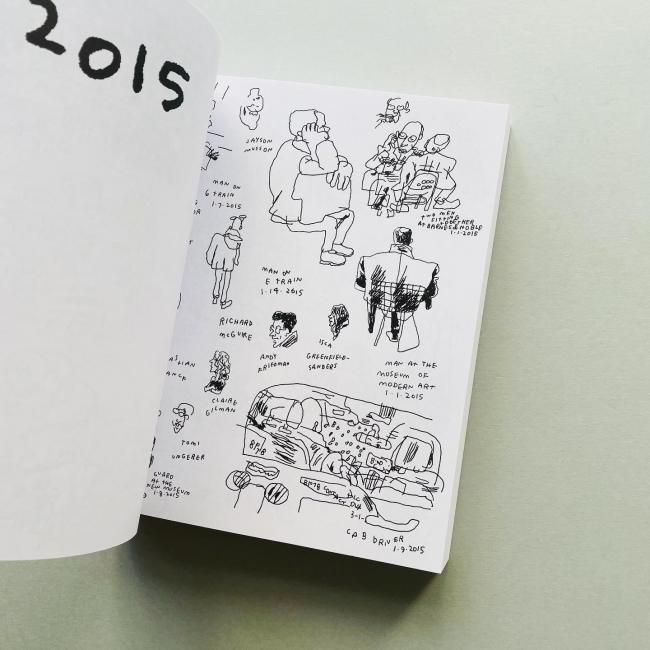 2015
JAYSON
MUSSON
MAN ON
G TRAIN
1.7.2015
TWO MEN
SITTING
TOGETHER
AT BARNES & NOBLE
1.1.2015
MAN ON
E TRAIN
1.14.2015
RICHARD
McGUIRE
ANDY
FRIEDMAN
ISCA
GREENFIELD-
SANDERS
MAN AT THE
MUSEUM OF
MODERN ART
1.1.2015
CLAIRE
GILMAN
TOMI
UNGERER
GUARD
AT THE
NEW MUSEUM
1.8.2015
8P78
8P78
3-1-
CAB DRIVER
1.9.2015